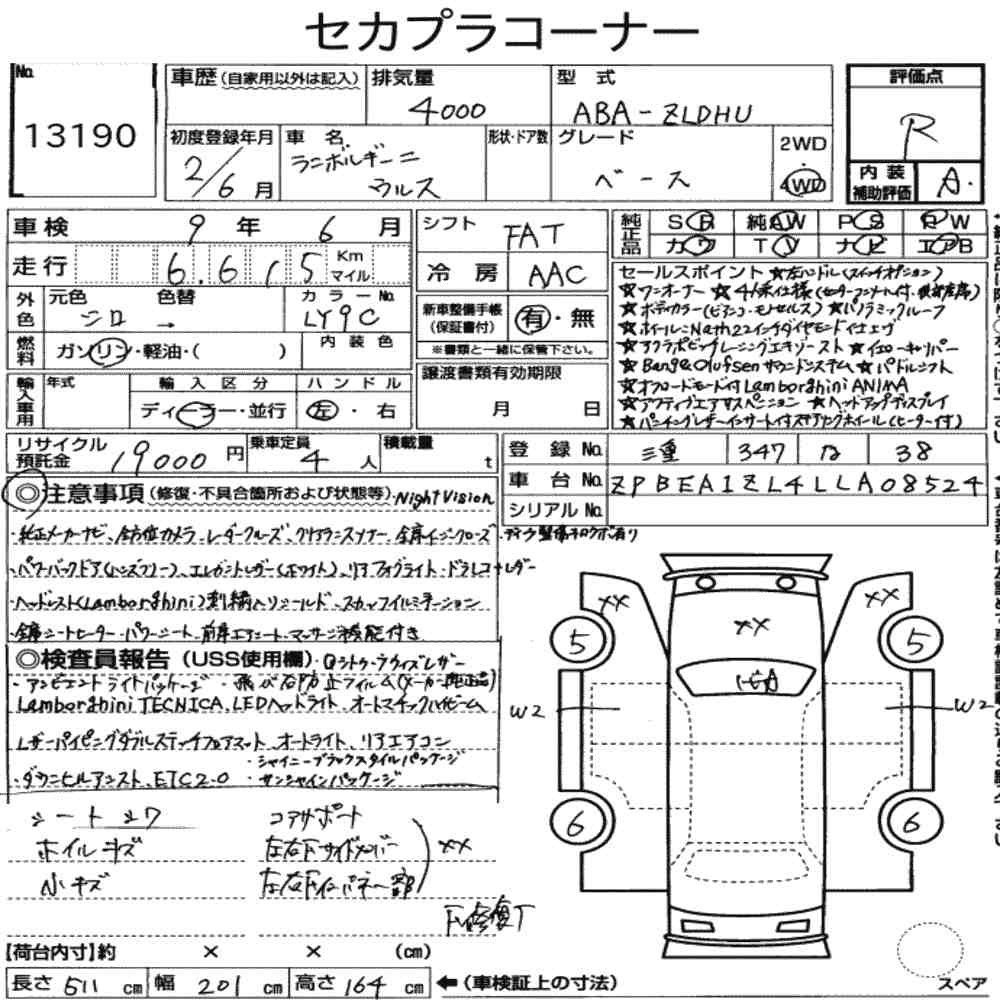 セカプラコーナー
No. 13190
車歴 (自家用以外は記入)
排気量 4000
型式 ABA-ZLDHU
評価点 R
初度登録年月 2/6月
車名 ランボルギーニ ウルス
形状・ドア数
グレード ベース
2WD・4WD
内装補助評価 A.
車検 9年 6月
シフト FAT
純正品 SR 純AW PS PW
カワ TV ナビ エアB
走行 6.615 Km マイル
冷房 AAC
外色 元色 シロ 色替 → カラーNo. LY9C
内装色
燃料 ガソリン・軽油・( )
新車整備手帳(保証書付) 有・無
※書類と一緒に保管下さい。
輸入車用 年式 輸入区分 ディーラー・並行 ハンドル 左・右
譲渡書類有効期限 月 日
セールスポイント ★左ハンドル(スイッチオプション)
★ワンオーナー ★4人乗仕様(
★ボディカラー(ビアンコ・モノセルス) ★パノラミックルーフ
★ホイールニNath22インチダイヤモンド
★アクラポビッチレーシングエキゾースト ★イエローキャリパー
★Bang&Olufsenサウンドシステム ★パドルシフト
★オフロードモード付Lamborghini ANIMA
★アクティブエアサスペンション ★ヘッドアップディスプレイ
★パンチングレザーインサート付ステアリングホイール(ヒーター付)
リサイクル預託金 19000円
乗車定員 4人
積載量 t
登録No. 三重 347 な 38
車台No. ZPBEA1ZL4LLA08524
シリアルNo.
◎注意事項 (修復・不具合箇所および状態等)・Night Vision
・純正メーカーナビ、全方位カメラ・レーダークルーズ、クリアランスソナー、全席イージークローズ・ディーラー整備テロクボ有り
・パワーバックドア(ハンズフリー)、エレガントレザー(ホワイト)、リアフォグライト・ドラレコ・レーダー
・ヘッドレスト(Lamborghini)刺繍入りシールド、スカッフイルミネーション
・全席シートヒーター・パワーシート、前席エアシート・マッサージ機能付き
◎検査員報告 (USS使用欄)
・アンビエントライトパッケージ ・飛び石防止フィルム(メーカー純正品)
Lamborghini TECNICA、LEDヘッドライト、オートマチックハイビーム
レザーパイピングダブルステッチフロアマット、オートライト、リアエアコン
・シャイニーブラックスタイルパッケージ
・ダウンヒルアシスト、ETC2.0 ・サンシャインパッケージ
シートシワ
ホイルキズ
小キズ
コアサポート
左右右下サイドメンバー
左右右下インパネー部
××
下廻修復下
×× ×× ××
5 5
1ヒA
W2 W2
6 6
スペア
【荷台内寸】約 × × (cm)
長さ 511 cm 幅 201 cm 高さ 164 cm ←(車検証上の寸法)